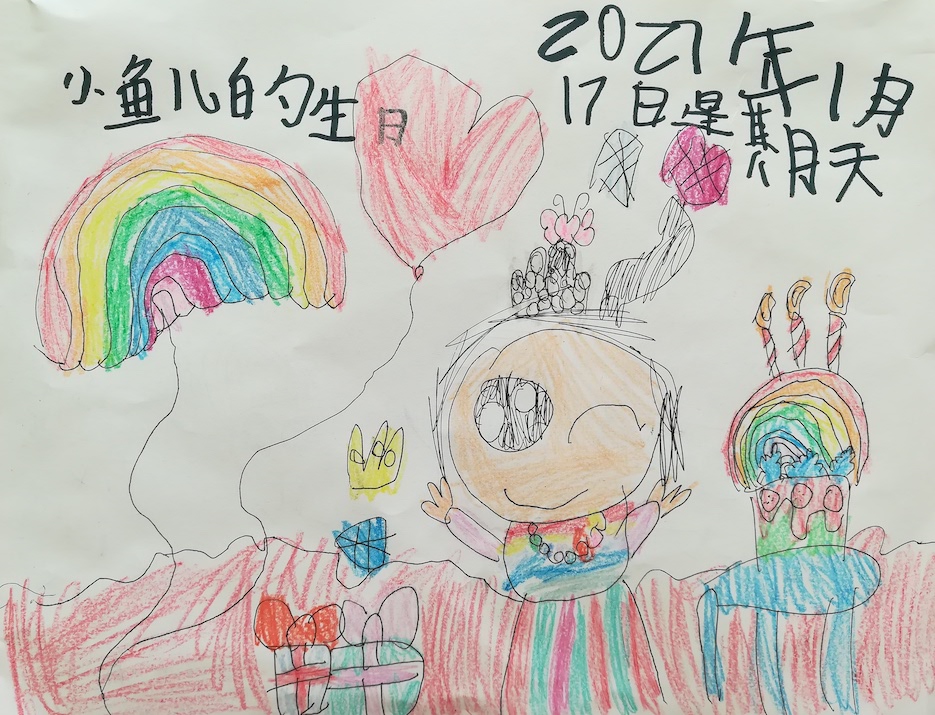 小鱼儿的生日
2021年1月
17日星期天